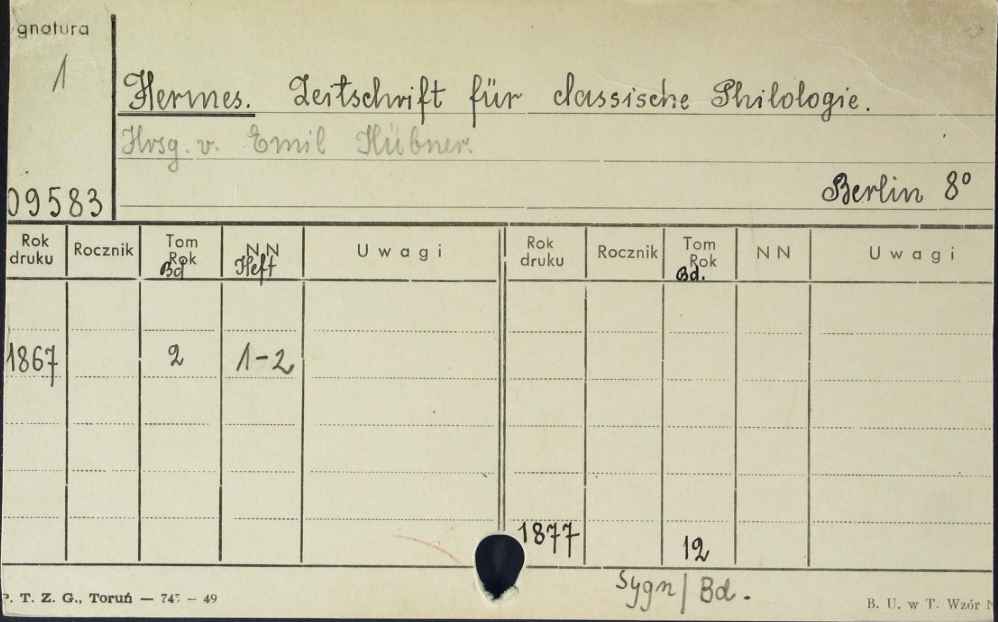 gnatura
1
Hermes. Zeitschrift für classische Philologie.
Hrsg. v. Emil Hübner.
09583
Berlin 8°
Rok druku Rocznik Tom Rok Bd NN Heft Uwagi Rok druku Rocznik Tom Rok Bd. NN Uwagi
1867 2 1-2
1877 12
Sygn/Bd.
P. T. Z. G., Toruń — 745 — 49
B. U. w T. Wzór N